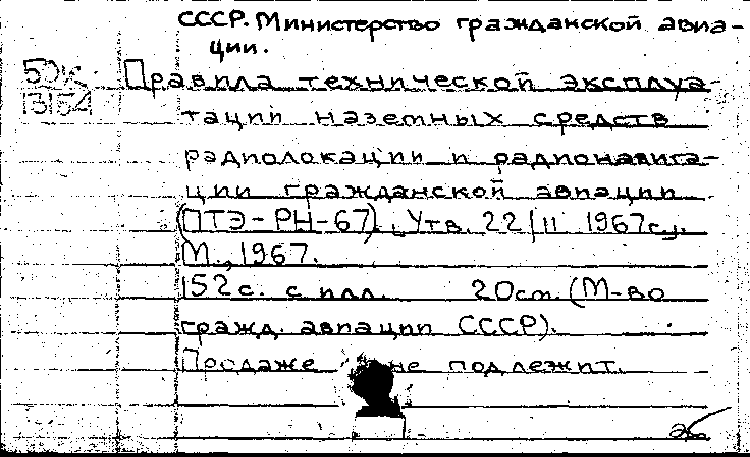 СССР. Министерство гражданской авиа-
ции.
Правила технической эксплуа-
тации наземных средств
радиолокации и радионавига-
ции гражданской авиации
(ПТЭ-РН-67). Утв. 22/II 1967
М., 1967.
152с. с илл. 20см. (М-во
гражд. авиации СССР).
Продаже не подлежит.